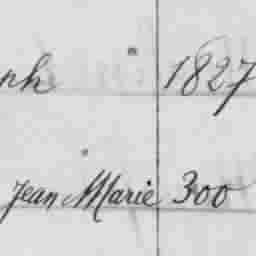 ph 1827
Jean Marie 300